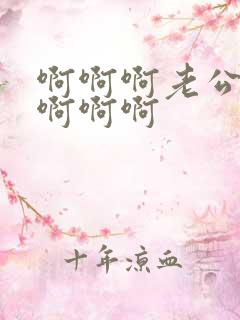 啊啊啊老公
啊啊啊
十年凉血